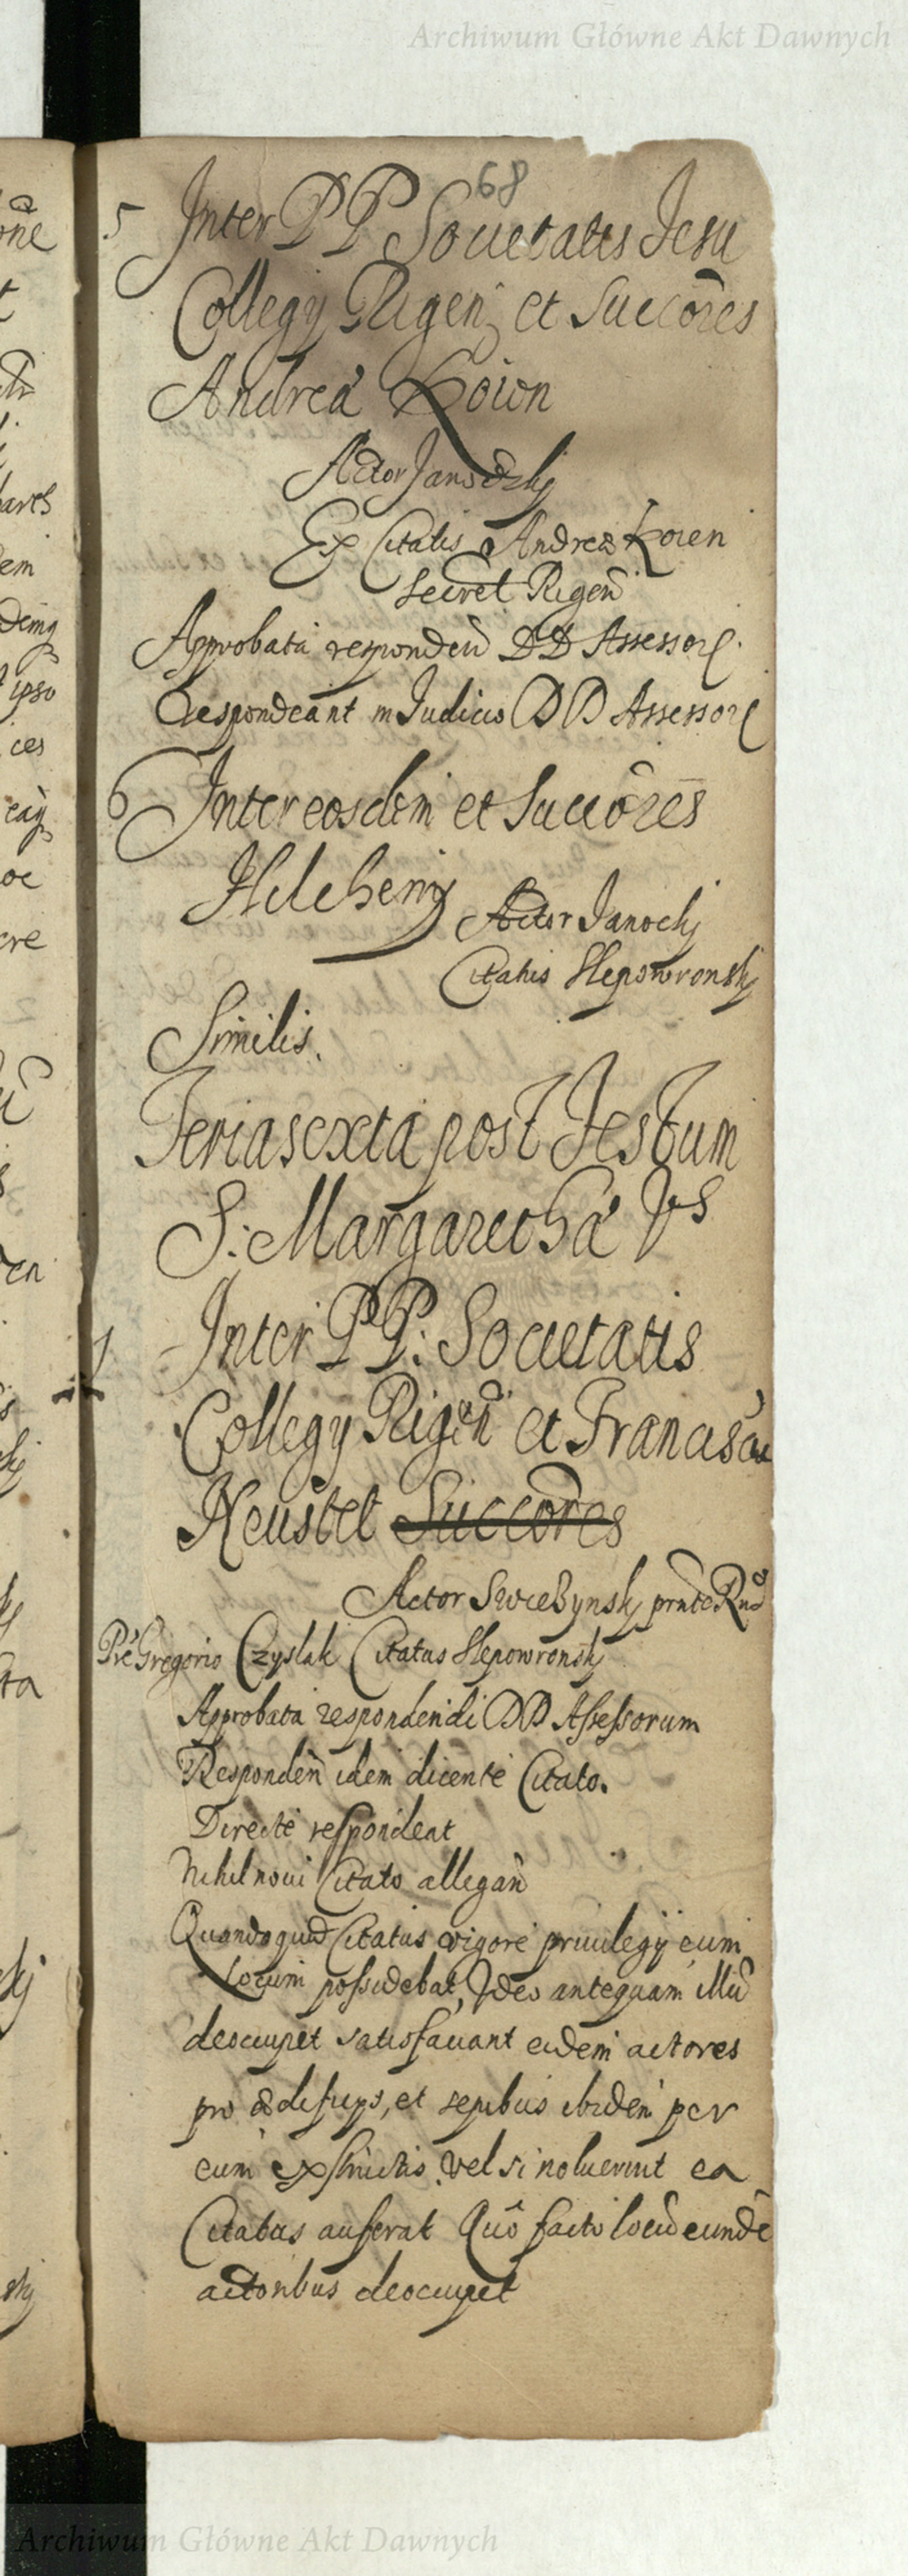 Archiwum Główne Akt Dawnych
68
5 Inter PP Societatis Jesu
Collegy Rigen et Succores
Andrea Koion
Actor Janoczkj
Ex Citatis Andrea Koien
Secret Rigen
Approbata responden DD Assessor
Respondeant in Judicio DD Assessor
6 Inter eosdem et Succores
Hilcheny Actor Janockj
Citatis Slepowronskj
Similis.
Feria sexta post Festum
S: Margaretha Vs
1 Inter PP: Societatis
Collegy Rigen et Francisca
Neustet Succores
Actor Swiebynskj prnte Rndo
Pre Gregorio Czyslak Citatus Slepowronskj
Approbata respondendi DD Assessorum
Responden idem dicente Citato.
Directe respondeat
Nihil noui Citato allegan
Quandoquid Citatus vigore priuilegij eum
Locum possidebat, Ideo antequam illu
deocupet satisfaciant eidem actores
pro aedificys, et sepibus ibidem per
eum exstructis. Vel si noluerint ea
Citatus auferat Quo facto locu eunde
actoribus deocupet
Archiwum Główne Akt Dawnych